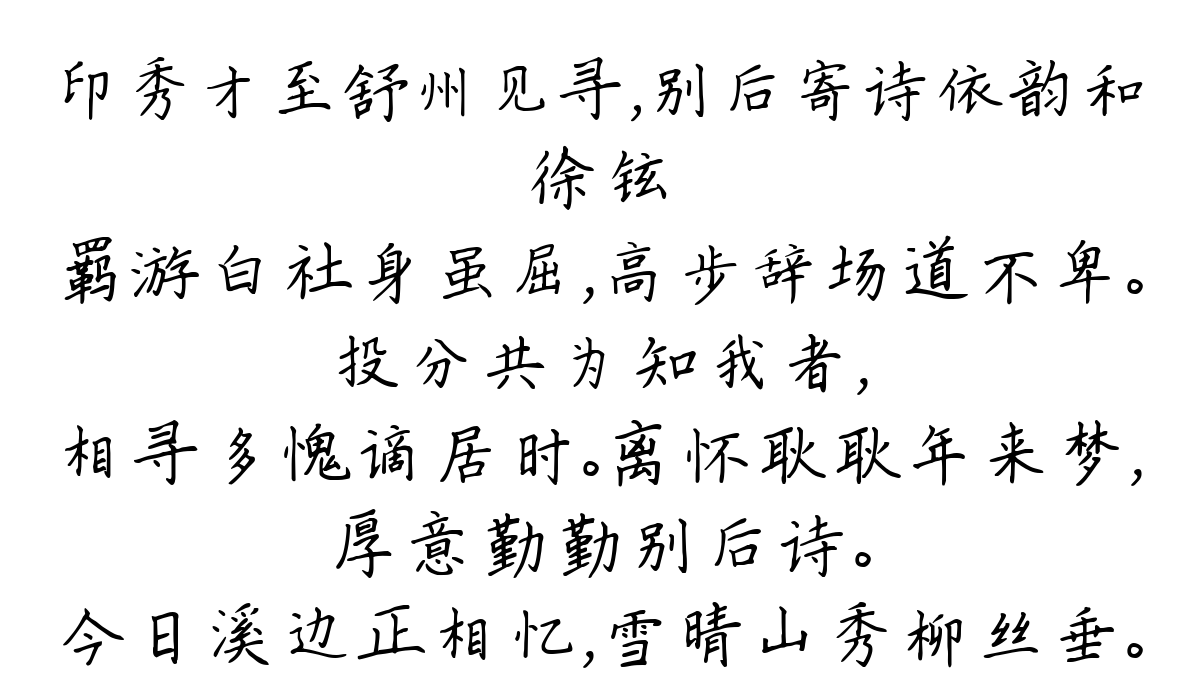 印秀才至舒州见寻,别后寄诗依韵和
徐铉
羁游白社身虽屈,高步辞场道不卑。
投分共为知我者,
相寻多愧谪居时。离怀耿耿年来梦,
厚意勤勤别后诗。
今日溪边正相忆,雪晴山秀柳丝垂。